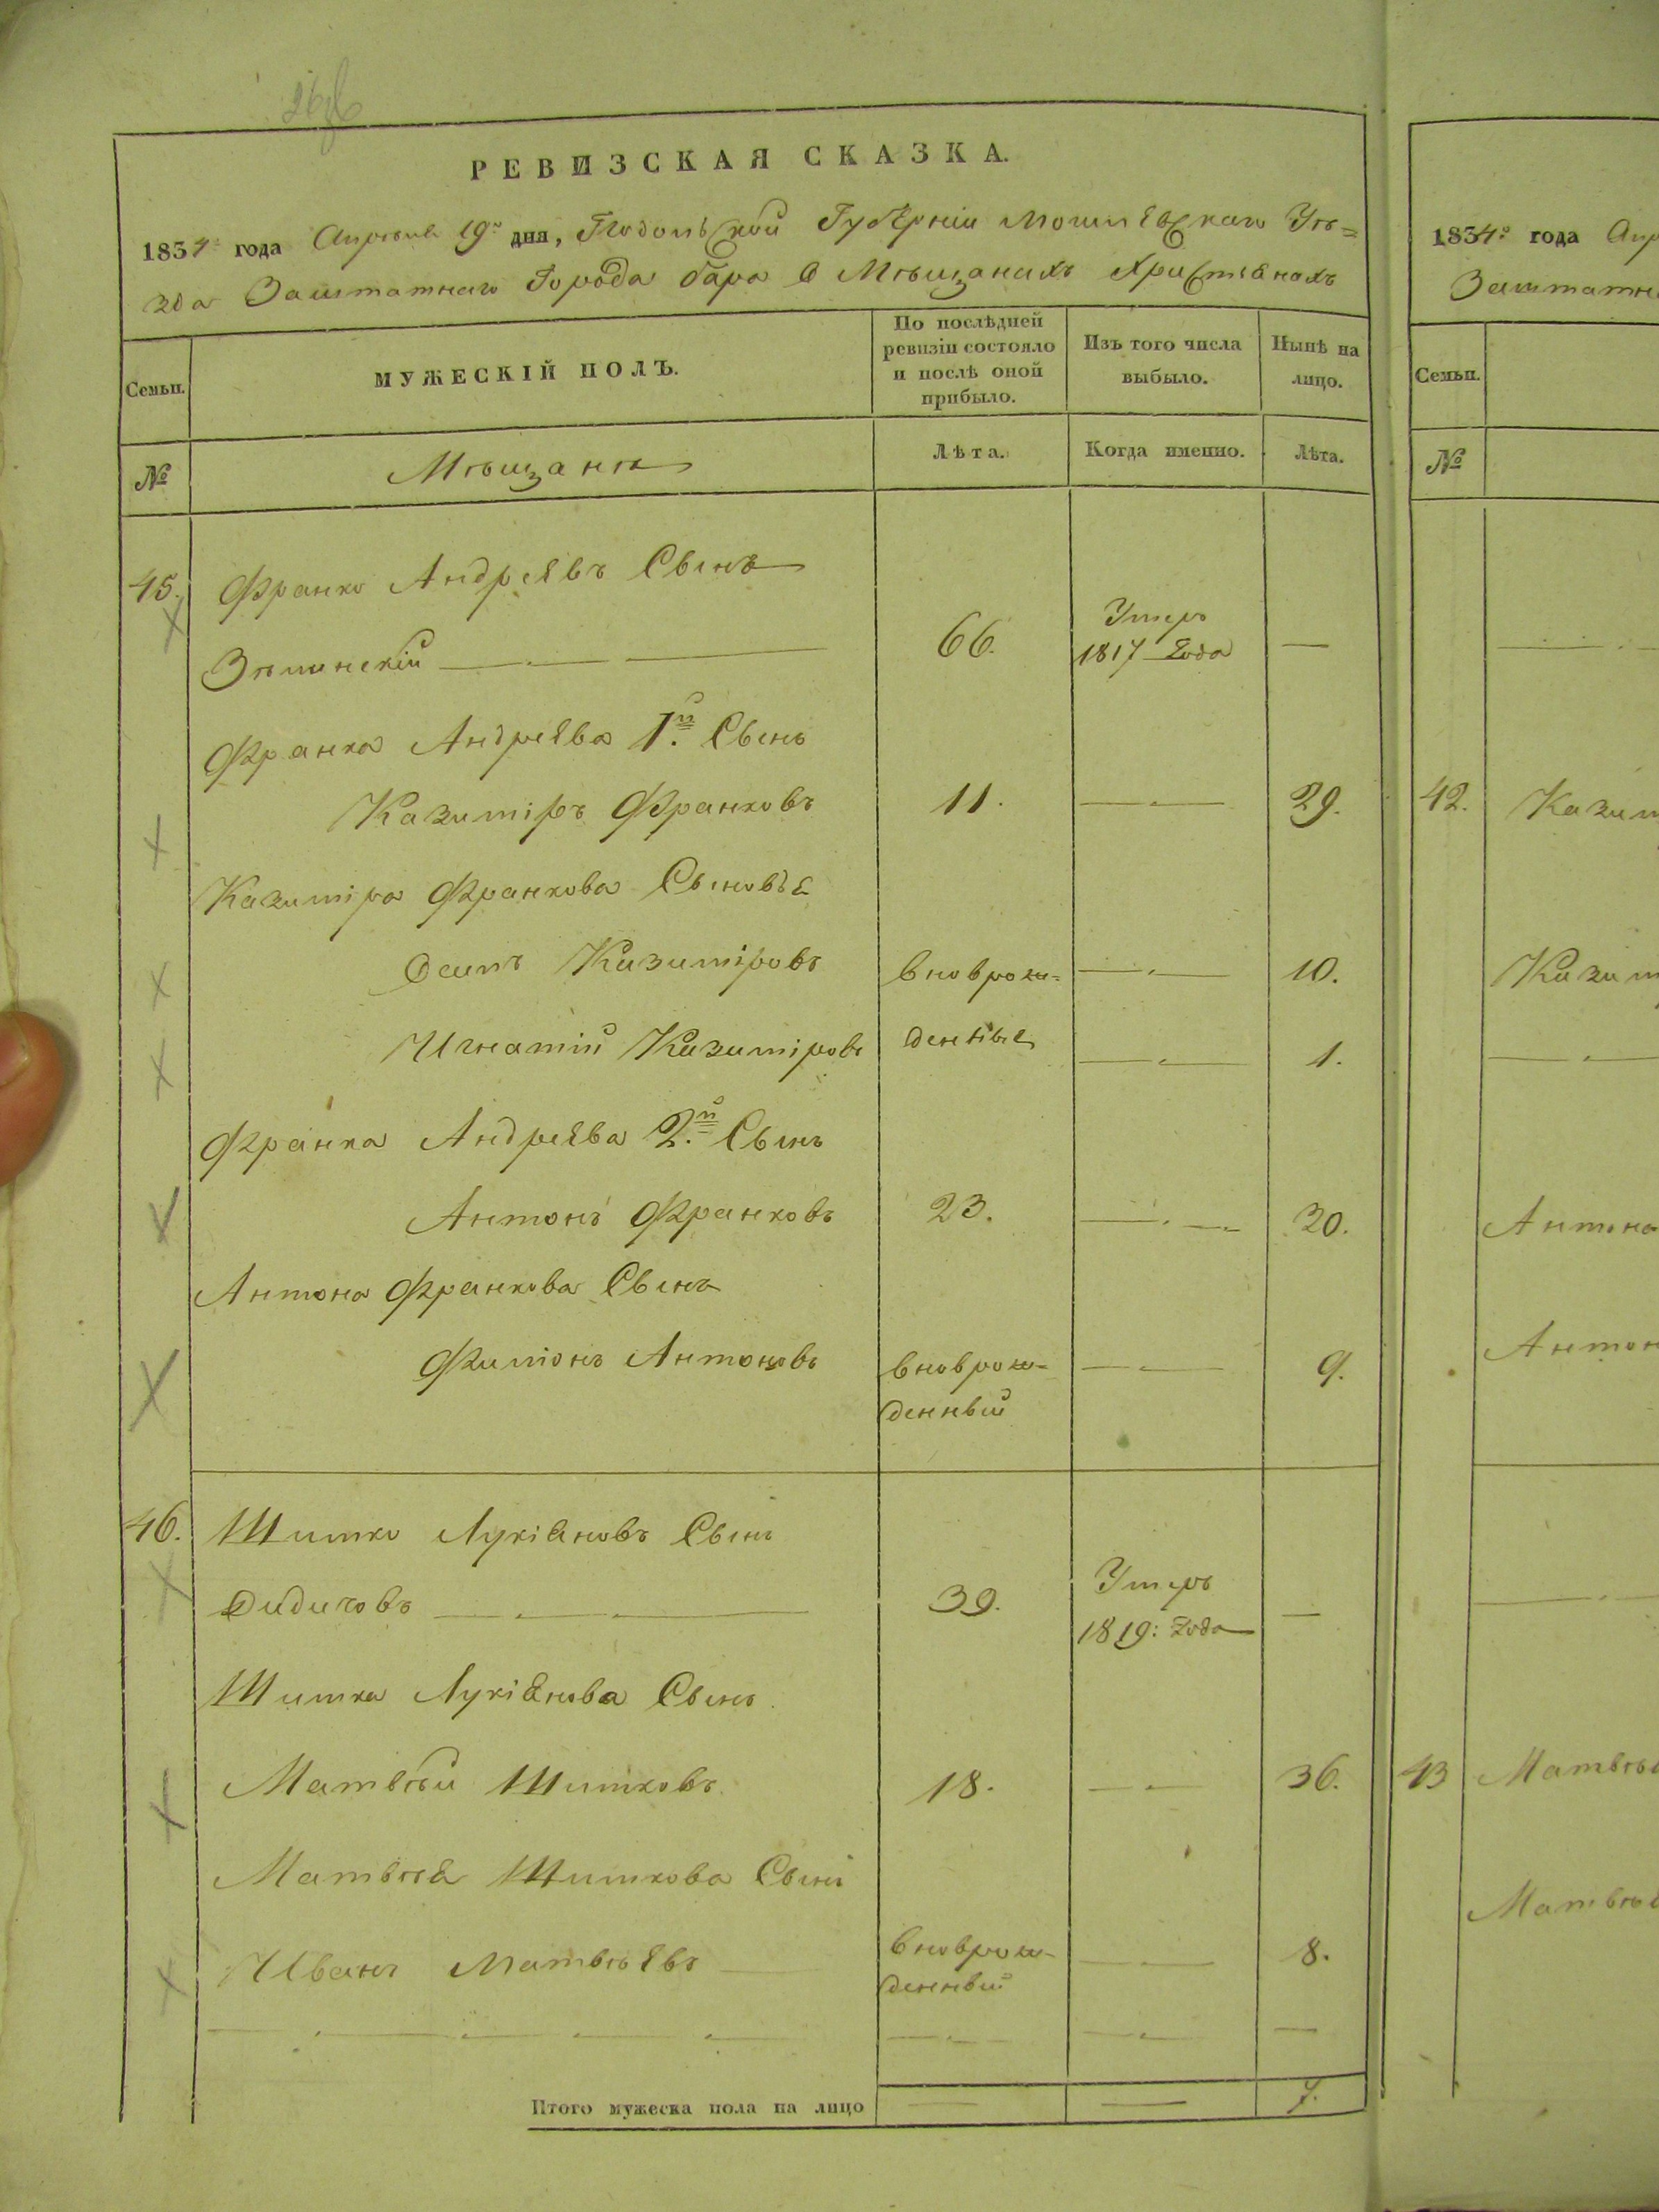 РЕВИЗСКАЯ СКАЗКА.
1834го года Апреля 19го дня, Подольской Губерніи Могилевскаго Уѣ=
зда Заштатнаго Города бара О Мѣщанахъ Христианахъ
Семьи.
МУЖЕСКІЙ ПОЛЪ.
По послѣдней ревизіи состояло и послѣ оной прибыло.
Изъ того числа выбыло.
Нынѣ на лицо.
№
Мѣщане
Лѣта.
Когда именно.
Лѣта.
45. Франко Андреевъ Сынъ
Умеръ
66. 1817 года —
Франка Андреева 1й. Сынъ
Казимiръ Франковъ 11. — 29.
Казимiра Франкова Сыновье
Осипъ Казимiровъ вноврож= — 10.
Игнатiй Казимiровъ денные — 1.
Франка Андреева 2.й Сынъ
Антонъ Франковъ 23. — 30.
Антона Франкова Сынъ
Антоновъ вноврож= — 9.
денный
46. Лукiановъ Сынъ
Умеръ
39. —
1819: года
Лукiанова Сынъ
Матвѣй 18. — 36.
Матвѣя Сынъ
Иванъ Матвѣевъ вноврож= — 8.
денный
Итого мужеска пола на лицо 7.
1834го года Апр
Заштатна
Семьи.
№
42. Казим
Казим
Антона
Антон
43 Матвѣ
Матвѣ